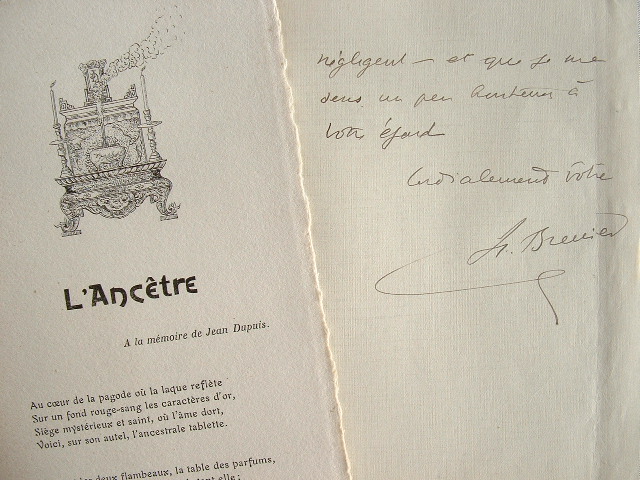 L'Ancêtre
A la mémoire de Jean Dupuis.
Au cœur de la pagode où la laque reflète
Sur un fond rouge-sang les caractères d'or,
Siège mystérieux et saint, où l'âme dort,
Voici, sur son autel, l'ancestrale tablette.
deux flambeaux, la table des parfums,
elle ;
négligent — et que je me
sens un peu honteux à
votre égard
Cordialement vôtre
H. Brenier